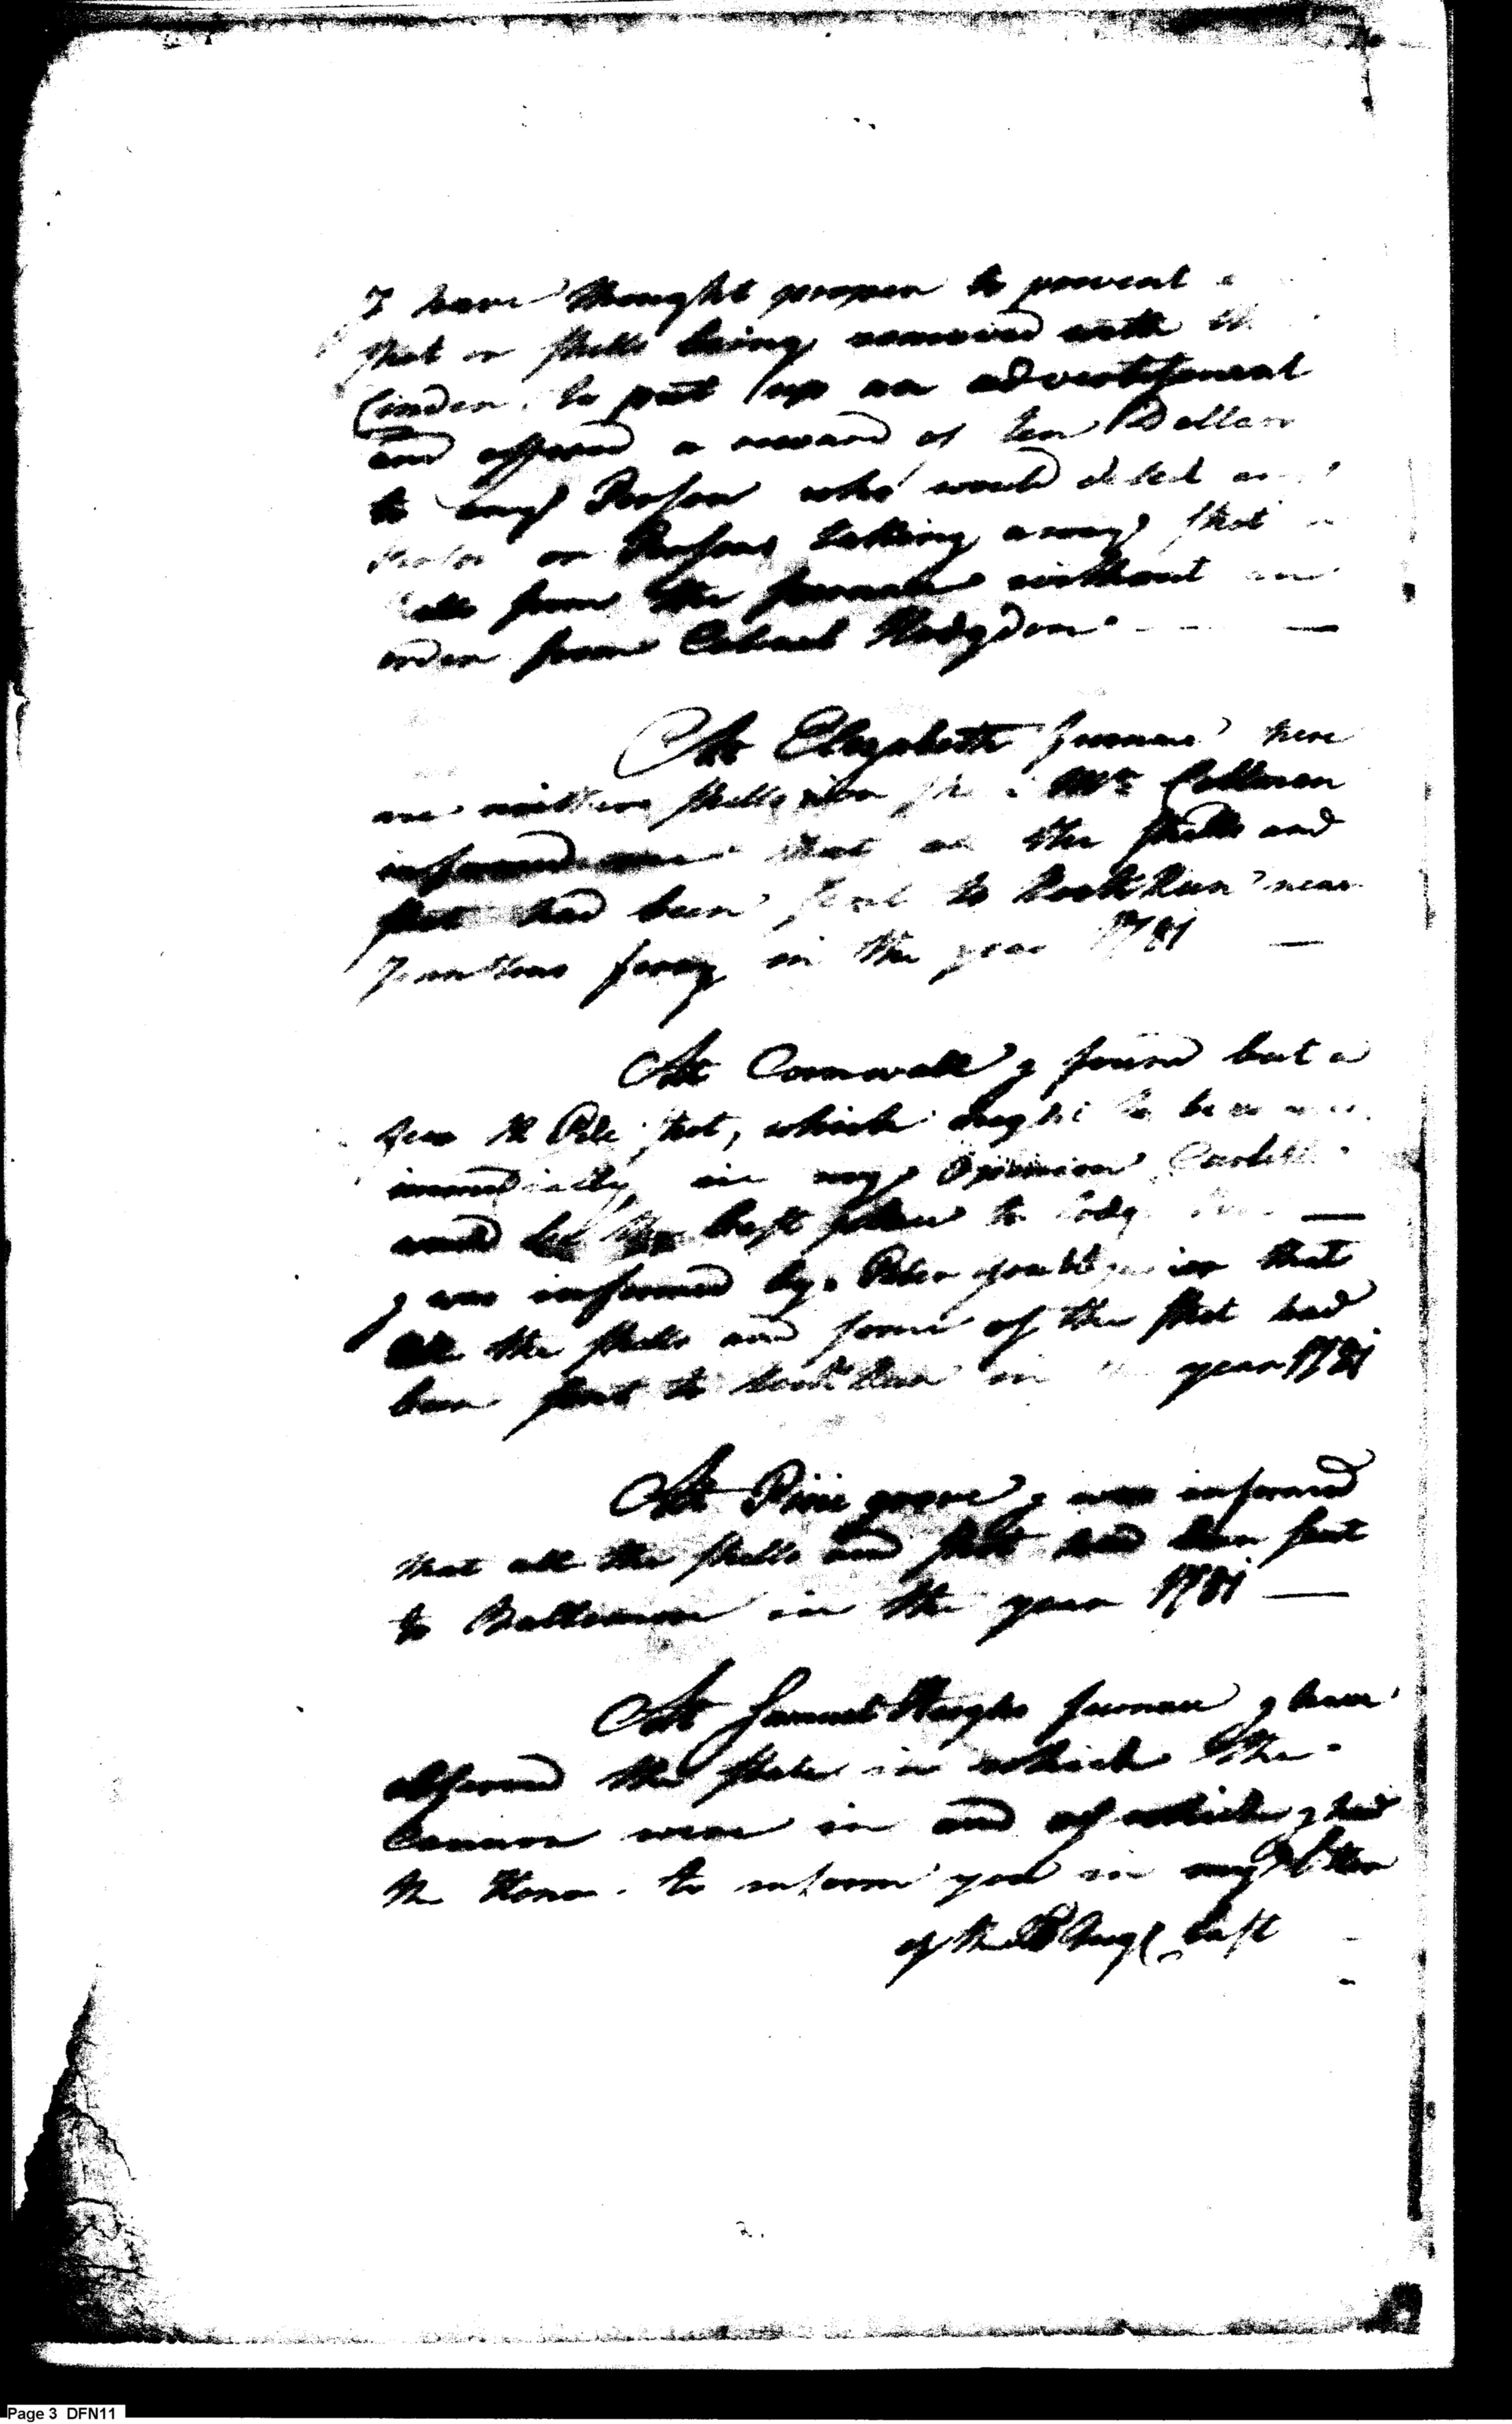 I have thought proper to prevent
shot or shells being removed with th
Cinder, to put up an advertisement
and offered a reward of ten Dollars
to any Person who would detect
or Persons takking away shot
from the furnace without an
order from Colonel Hodgdon. — —
At Elizabeth furnace here
are neither shells nor sho Mr. Collman
informed me that all the shells and
shot had been sent to Rock Run near
ferry in the year 1781 —
At Cornwall I found but a
few shot, which ought to be
in my Opinion Carlisle
would be the best place to lodge —
I was informed by that
all the shells and some of the shot had
been sent to Rock Run in year 1781
At Pine grove I was informed
that all the shells and shot had been sent
to Baltemore in the year 1781 —
At Samuel Hughs furnace I have
observed the state in which the
Cannon were in and of which I had
the Honor to inform you in my letter
of the Augt last
2.
Page 3 DFN11